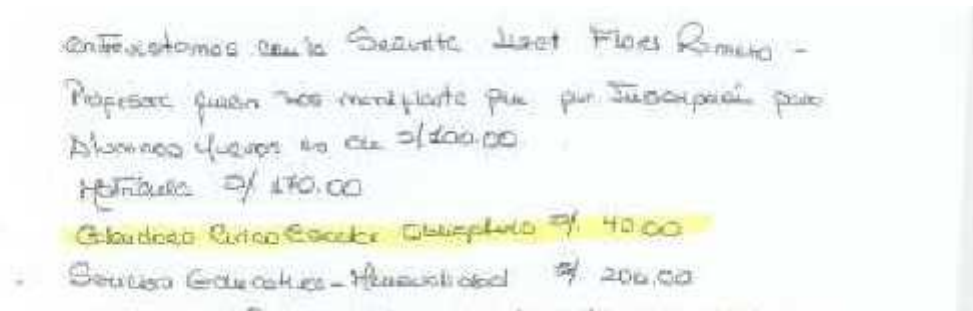 Entrevistamos con la Señorita Lizet Flores Romero -
Profesora quien nos manifiesta que por Inscripción para
Alumnos nuevos es de S/ 200.00
Matrícula S/ 170.00
Escolar Obligatorio S/. 40.00
Servicio Educativo - Mensualidad S/ 200.00